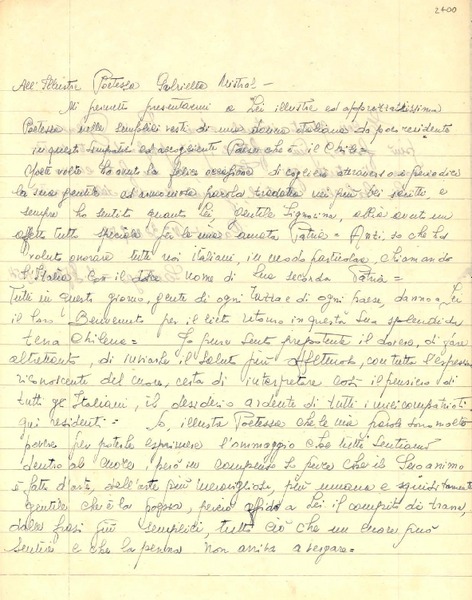 2400
All' Illustre Poetessa Gabriella Mistral -
Mi permetto presentarmi a Lei illustre ed apprezzatissima
Poetessa nelle semplici vesti di una donna italiana da poco residente
in questo simpatico ed accogliente Paese che è il Chile=
Molte volte ho avuto la felice occasione di cogliere attraverso a periodici
la sua gentile ed armoniosa parola tradotta nei più bei scritti, e
sempre ho sentito quanto Lei, gentile Signorina, abbia avuto un
affetto tutto speciale per la mia amata Patria= Anzi, so che ha
voluto onorare tutti noi italiani, in modo particolare, chiamando
l'Italia con il nome di Sua seconda Patria=
Tutti in questo giorno, gente di ogni razza e di ogni paese, danno a Lei
il loro "Benvenuto" per il lieto ritorno in questa Sua splendida
terra Chilena= Io pure sento prepotente il dovere, di fare
altrettanto, di inviarle il saluto più affettuoso, con tutta l'espressione
riconoscente del cuore, certa di interpretare così il pensiero di
tutti gli Italiani, il desiderio ardente di tutti i miei compatrioti
qui residenti= So, illustre Poetessa che le mie parole sono molto
povere per poterle esprimere l'ommaggio che tutti sentiamo
dentro al cuore, però in compenso so pure che il Suo animo
è fatto d'arte, dell'arte più meravigliosa, più umana e squisitamente
gentile che è la poesia, perciò affido a Lei il compito di trarre,
dalle frasi più semplici, tutto ciò che un cuore può
sentire e che la penna non arriva a vergare=